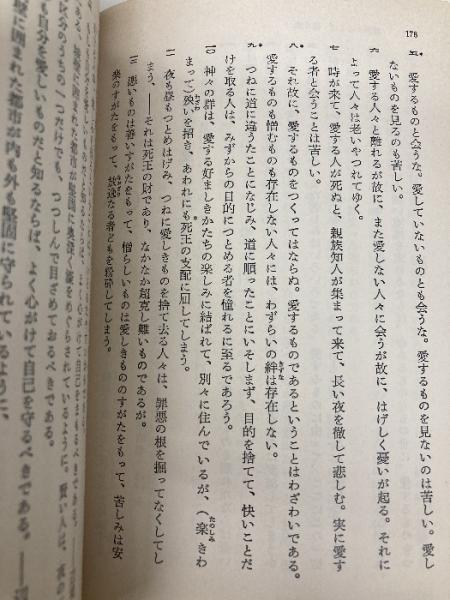 178
五* 愛するものと会うな。愛していないものとも会うな。愛するものを見ないのは苦しい。愛し
ないものを見るのも苦しい。
六 愛する人々と離れるが故に、また愛しない人々に会うが故に、はげしく憂いが起る。それに
よって人々は老いやつれてゆく。
七 時が来て、愛する人が死ぬと、親族知人が集まって来て、長い夜を徹して悲しむ。実に愛す
る者と会うことは苦しい。
八* それ故に、愛するものをつくってはならぬ。愛するものであるということはわざわいである。
愛するものも憎むものも存在しない人々には、わずらいの絆は存在しない。
九* つねに道に違うたことになじみ、道に順ったことにいそしまず、目的を捨てて、快いことだ
けを取る人は、みずからの目的につとめる者を憧れるに至るであろう。
一〇 神々の群は、愛する好ましきかたちの楽しみに結ばれて、別々に住んでいるが、(楽きわ
まって)殃いを招き、あわれにも死王の支配に屈してしまう。
一一 夜も昼もつとめはげみ、つねに愛しきものを捨て去る人々は、罪悪の根を掘ってなくしてし
まう、——それは死王の財であり、なかなか超克し難いものであるが。
一二 悪いものは善いすがたをもって、憎らしいものは愛しきもののすがたをもって、苦しみは安
楽のすがたをもって、放逸なる者どもを粉砕してしまう。
も自分を愛しいものだと知るならば、よく心がけて自己を守るべきである。——
に囲まれた都市が内も外も堅固に守られているように、